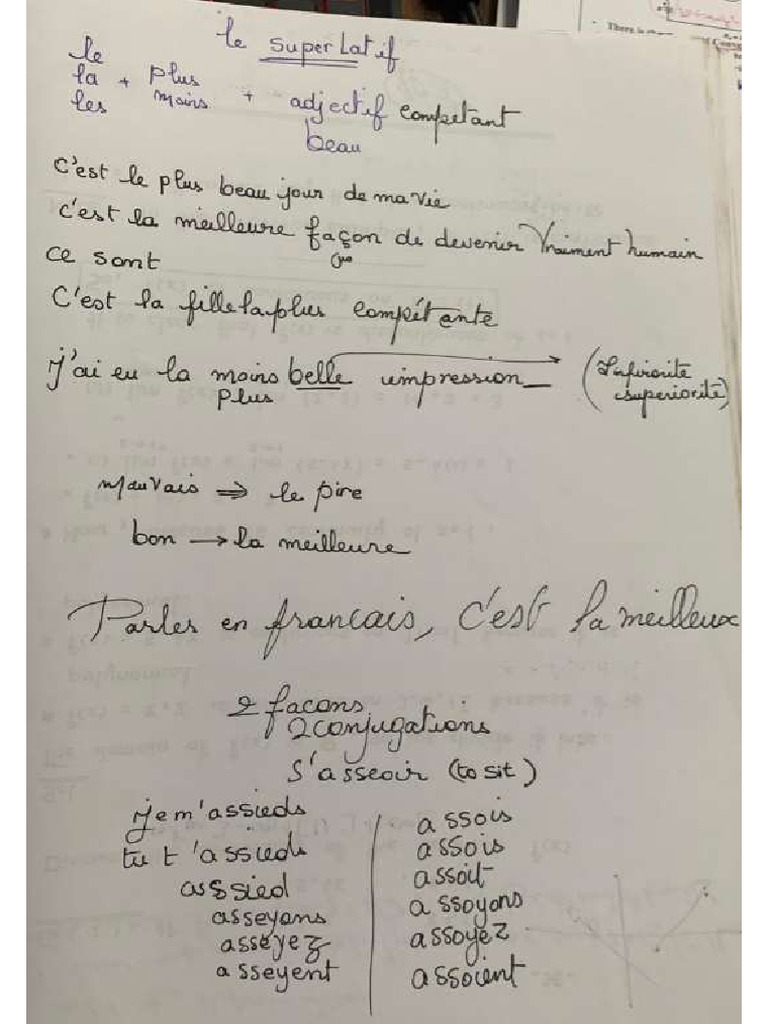 le superlatif
le
la + plus
les moins + adjectif compétant
beau
C'est le plus beau jour de ma vie
C'est la meilleure façon de devenir vraiment humain
ce sont que
C'est la fille la plus compétente
J'ai eu la moins belle impression (Infiriorité
plus superiorité)
mauvais ⇒ le pire
bon → la meilleure
Parler en francais, c'est la meilleux
2 facons
2 conjugations
s'asseoir (to sit)
je m'assieds assois
tu t'assieds assois
assied assoit
asseyons assoyons
asseyez assoyez
asseyent assoient
There is